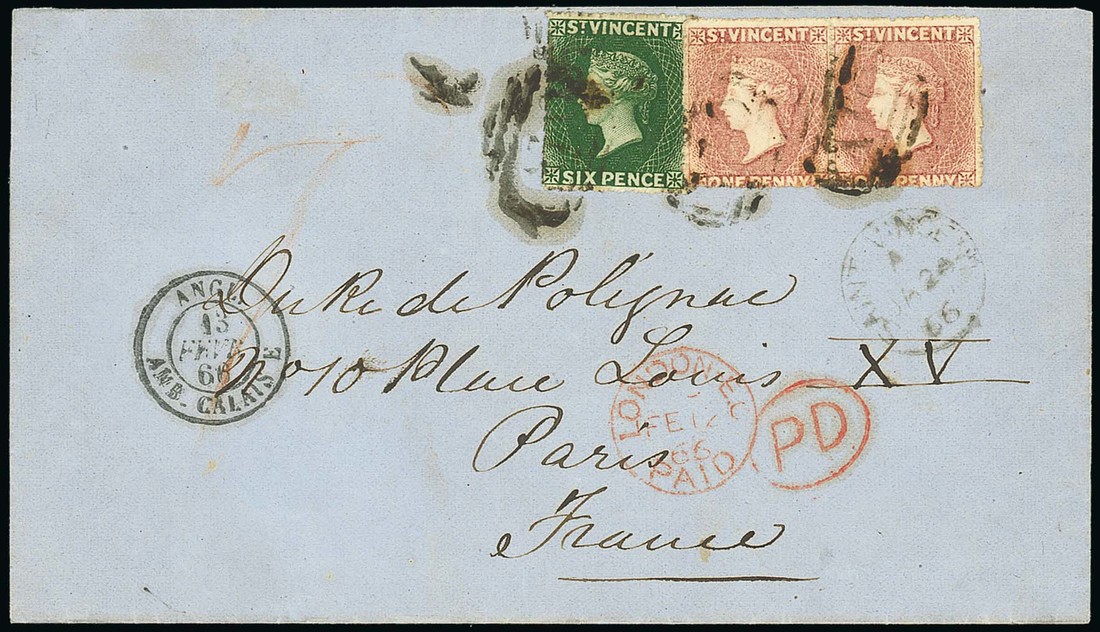 ST VINCENT
SIX PENCE
ST VINCENT
ONE PENNY
ST VINCENT
PENNY
VINCENT
A
24
66
Duke de Polignac
No 10 Place Louis XV
Paris
France
ANGL.
13
FEVR
66
AMB. CALAIS E
LONDON E.C.
FE 12
66
PAID
PD